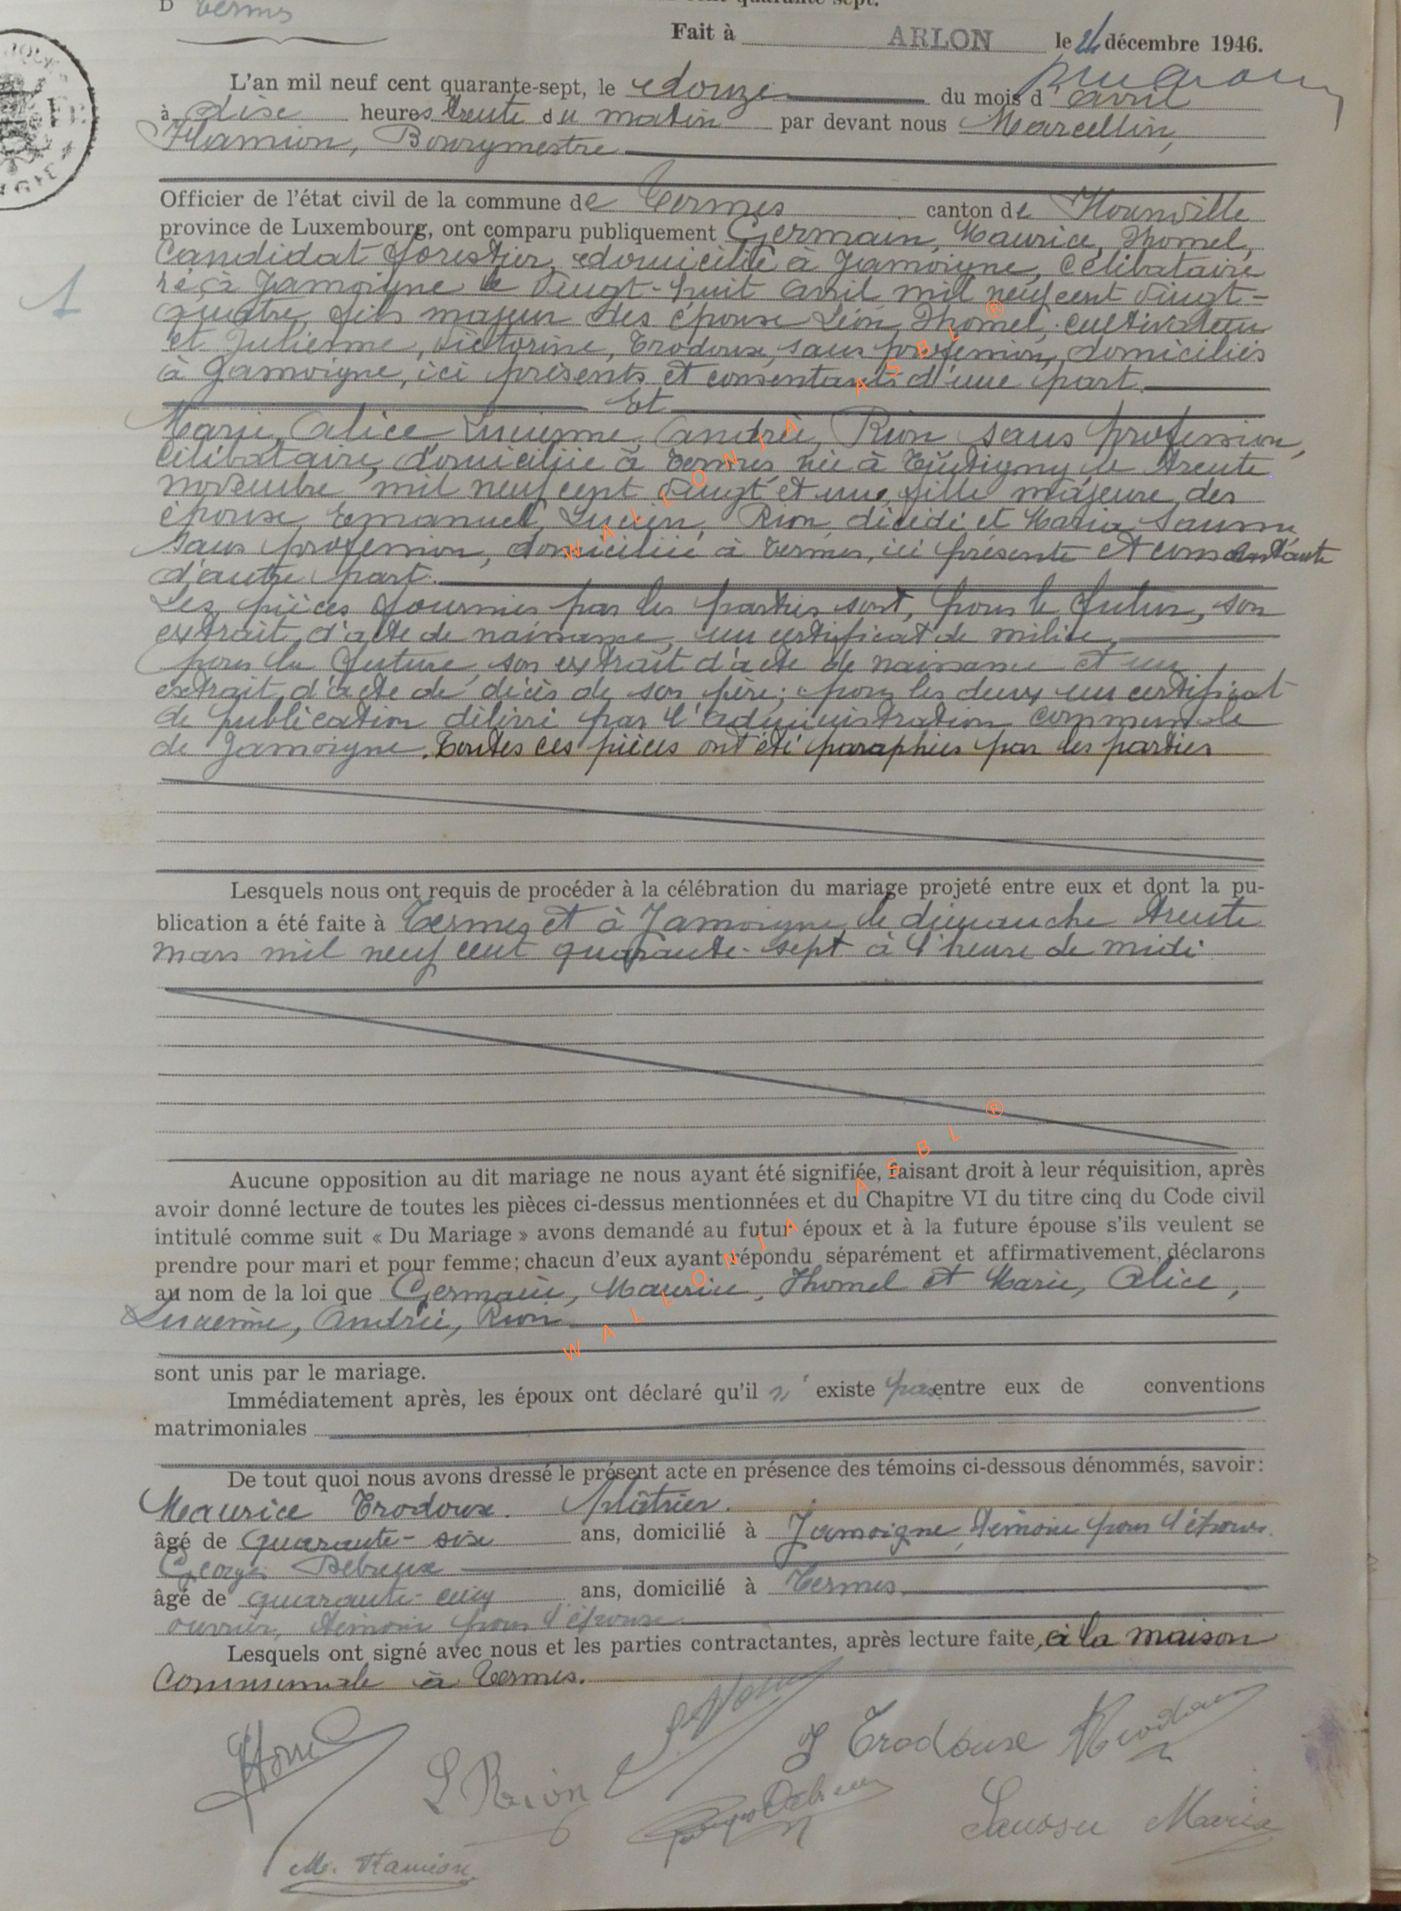 D Termes
Fait à ARLON le 24 décembre 1946.
L'an mil neuf cent quarante-sept, le douze du mois d'avril
à dix heures trente du matin par devant nous Marcellin,
Hamion, Bourgmestre
Officier de l'état civil de la commune de Termes canton de
province de Luxembourg, ont comparu publiquement Germain, Maurice, Thomel,
candidat forestier, domicilié à Jamoigne, célibataire
né à Jamoigne le vingt-huit avril mil neuf cent vingt-
quatre, fils majeur des époux Léon, Thomel, cultivateur
et Julienne, Victorine, Trodoux, sans profession, domiciliés
à Jamoigne, ici présents et consentants d'une part.
Et
1
Marie, Alice, Lucienne, Andrée, Rion sans profession,
célibataire, domiciliée à Termes, née à Tintigny le trente
novembre mil neuf cent vingt et une, fille majeure des
époux, Emanuel, Lucien, Rion, décédé et Maria
sans profession, domiciliée à Termes, ici présente et consentante
d'autre part.
Les pièces fournies par les parties sont, pour le futur, son
extrait d'acte de naissance, un certificat de milice,
pour la future, son extrait d'acte de naissance et un
extrait d'acte de décès de son père; pour les deux un certificat
de publication délivré par l'administration communale
de Jamoigne. Toutes ces pièces ont été paraphées par les parties
Lesquels nous ont requis de procéder à la célébration du mariage projeté entre eux et dont la pu-
blication a été faite à Termes et à Jamoigne le dimanche trente
mars mil neuf cent quarante-sept à l'heure de midi
Aucune opposition au dit mariage ne nous ayant été signifiée, faisant droit à leur réquisition, après
avoir donné lecture de toutes les pièces ci-dessus mentionnées et du Chapitre VI du titre cinq du Code civil
intitulé comme suit « Du Mariage » avons demandé au futur époux et à la future épouse s'ils veulent se
prendre pour mari et pour femme; chacun d'eux ayant répondu séparément et affirmativement, déclarons
au nom de la loi que Germain, Maurice, Thomel et Marie, Alice,
Lucienne, Andrée, Rion
sont unis par le mariage.
Immédiatement après, les époux ont déclaré qu'il n'existe pas entre eux de conventions
matrimoniales
De tout quoi nous avons dressé le présent acte en présence des témoins ci-dessous dénommés, savoir:
Maurice Trodoux. Plâtrier.
âgé de quarante-six ans, domicilié à Jamoigne, témoin pour l'époux.
Georges Debreux
âgé de quarante-cinq ans, domicilié à Termes
ouvrier, témoin pour l'épouse
Lesquels ont signé avec nous et les parties contractantes, après lecture faite, à la maison
communale à Termes.
J Trodoux
L Rion
Maria
M. Hamion
WALLONIA ASBL ®
WALLONIA ASBL ®